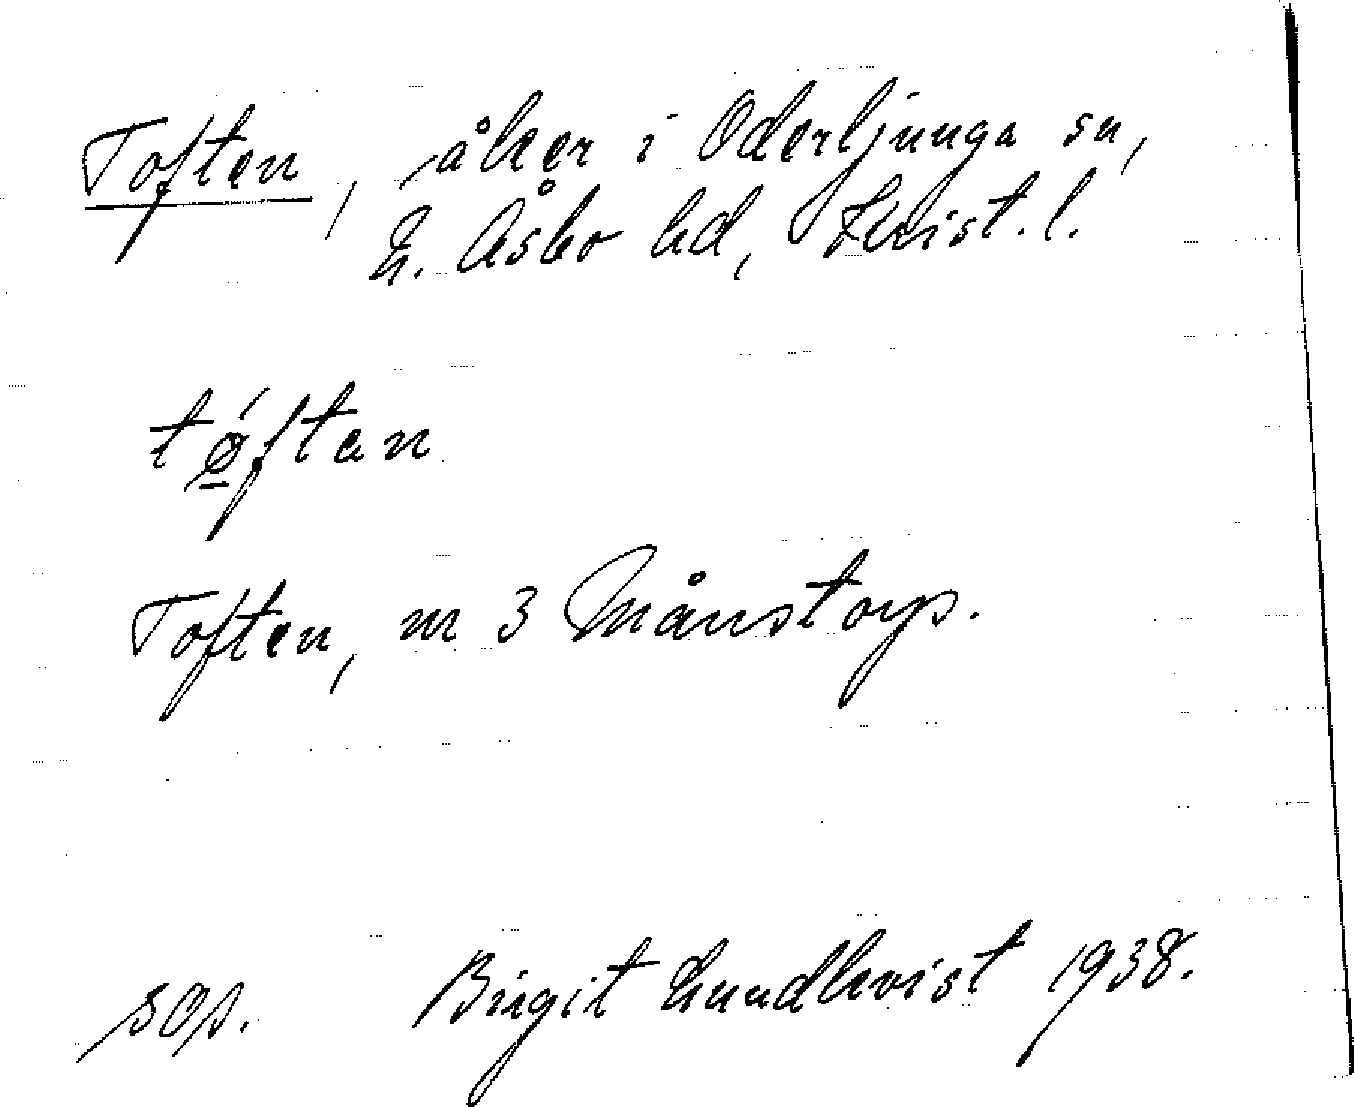 Toften, åker i Oderljunga sn,
N. Åsbo hd, Krist. l.
tǿ̱ftan
Toften, nr 3 Månstorp.
sop. Birgit Lundkvist 1938.